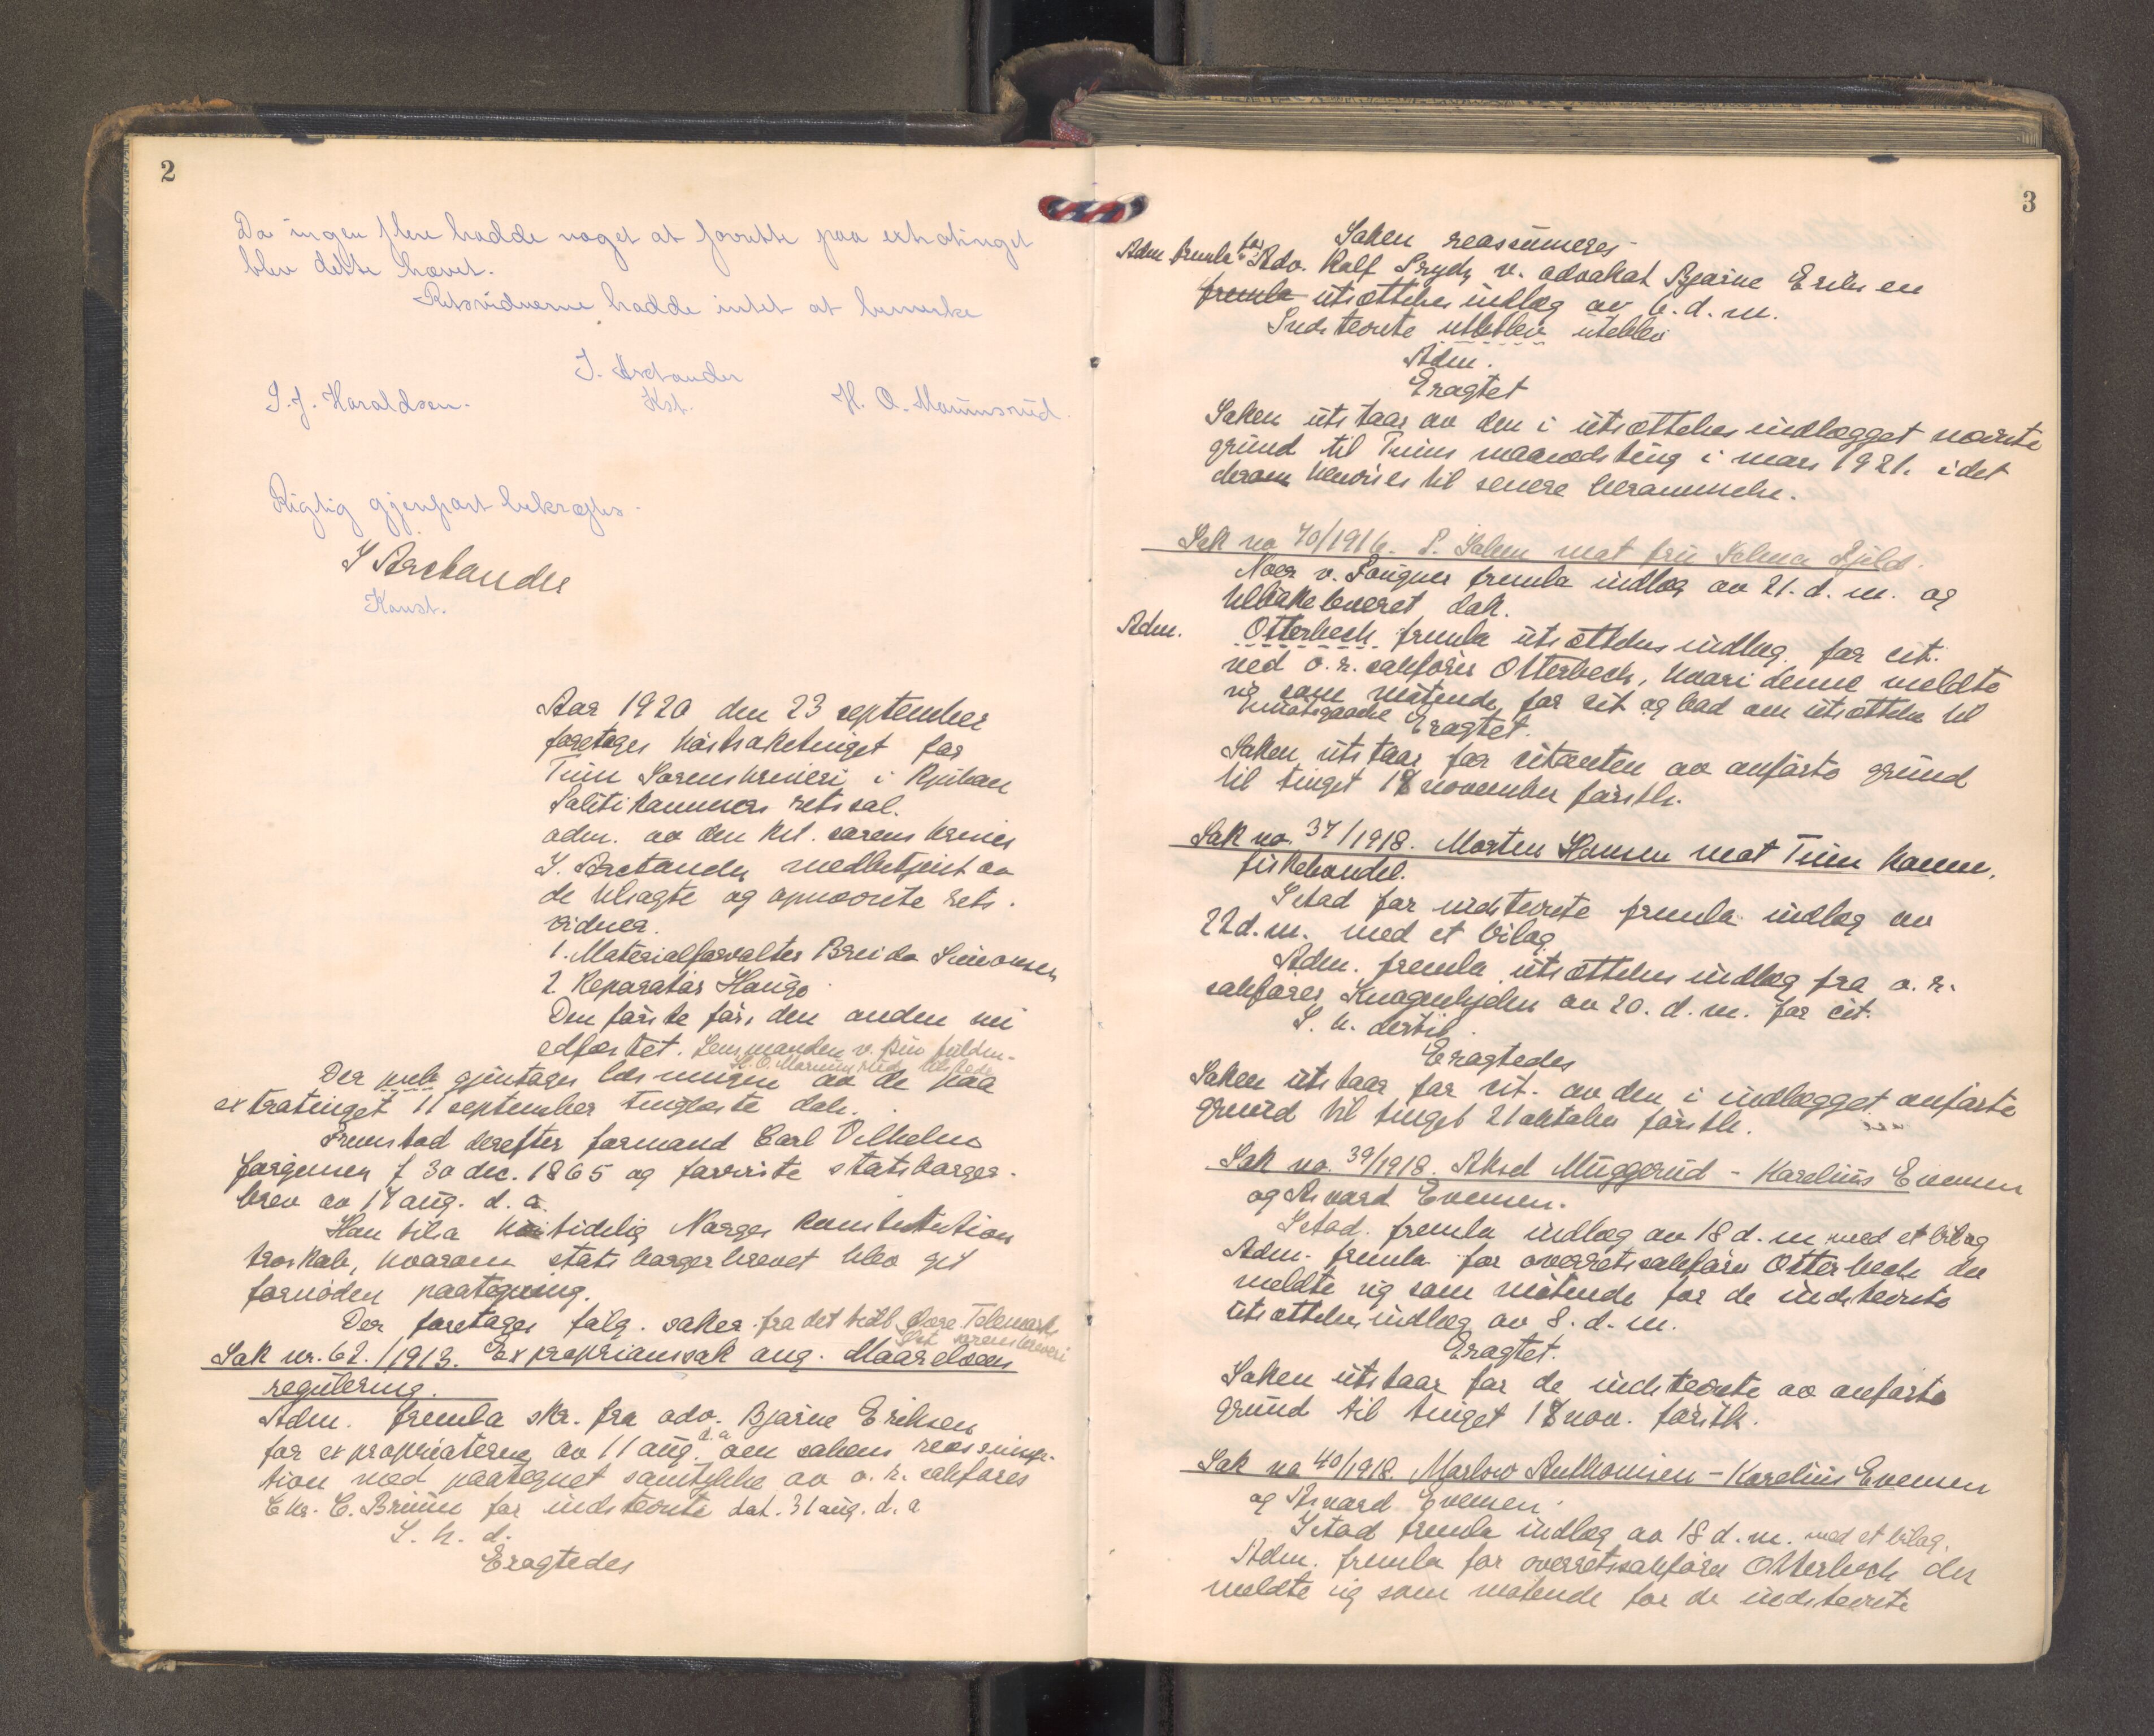 2
Da ingen flere hadde noget at forrette paa extratinget
blev dette hævet.
Retsvidnerne hadde intet at bemerke
J. Arctander
Kst.
S. J. Haraldsen.
H. O. Maurusrud.
Rigtig gjenpart bekræftes.
J Arctander
Konst.
Aar 1920 den 23 september
foretages høstsaketinget for
Tinn Sorenskriveri i Rjukan
Politikammers retssal.
adm. av den kst. sorenskriver
J. Arctander medbetjent av
de tilsagte og opnævnte rets-
vidner.
1. Materialforvalter Breida Simonsen
2. Reparatør Haugo
Den første før, den anden nu
edfæstet. Lensmanden v. sin fuldm.
H. O. Maurusrud tilstede
Der gjentages læsningen av de paa
extratinget 11 september tinglæste dok.
Fremstod derefter formand Carl Vilhelm
Jørgensen f 30 dec. 1865 og foreviste statsborger-
brev av 17 aug. d. a.
Han tilsa høitidelig Norges konstitution
troskab, hvorom statsborgerbrevet blev git
fornøden paategning.
Der foretages følg. saker fra det tidl. Øvre Telemark
Øst. sorenskriveri
Sak nr. 62./1913. Expropriansak ang. Maarelven
regulering.
Adm. fremla skr. fra adv. Bjarne Eriksen
for expropriaterne av 11 aug. d. a. om sakens reassump-
tion med paategnet samtykke av o. r. sakfører
Chr. C. Bruun for indstevnte dat. 31 aug. d. a
S. h. d.
Eragtedes
3
Saken reassumeres
Adm fremla for Adv. Rolf Prydz v. advokat Bjarne Eriksen
fremla utsættelsesindlæg av 6. d. m.
Indstevnte utebblev uteblev
Adm.
Eragtet
Saken utstaar av den i utsættelsesindlægget nævnte
grund til Tinns maanedsting i mars 1921. idet
derom henvises til senere berammelse.
Sak no 70/1916. P. Salen mot fru Selma Kjilds.
Noer v. Fougner fremla indlæg av 21. d. m. og
tilbakeleveret dok.
Adm. Otterbech fremla utsættelsesindlæg for cit.
ved o. r. sakfører Otterbech, hvori denne meldte
sig som møtende for cit og bad om utsættelse til
imøtegaaelse
Eragtet.
Saken utstaar for citanten av anførte grund
til tinget 18 november førstk.
Sak no. 37/1918. Morten Hansen mot Tinn komm.
fiskehandel.
Istad for indstevnte fremla indlæg av
22 d. m. med et bilag
Adm. fremla utsættelsesindlæg fra o. r.
sakfører Knagenhjelm av 20. d. m. for cit.
S. h. dertil.
Eragtedes
Saken utstaar for cit. av den i indlægget anførte
grund til tinget 21 oktober førstk.
Sak no. 39/1918. Aksel Muggerud - Karelius Evensen
og Sivard Evensen.
Istad. fremla indlæg av 18 d. m med et bilag
Adm. fremla for overretssakfører Otterbech der
meldte sig som møtende for de indstevnte
utsættelsesindlæg av 8. d. m.
Eragtet.
Saken utstaar for de indstevnte av anførte
grund til tinget 18 nov. førstk.
Sak no 40/1918 Marlow Anthonisen - Karelius Evensen
og Sivard Evensen.
Istad fremla indlæg av 18 d. m. med et bilag.
Adm. fremla for overretssakfører Otterbech der
meldte sig som møtende for de indstevnte